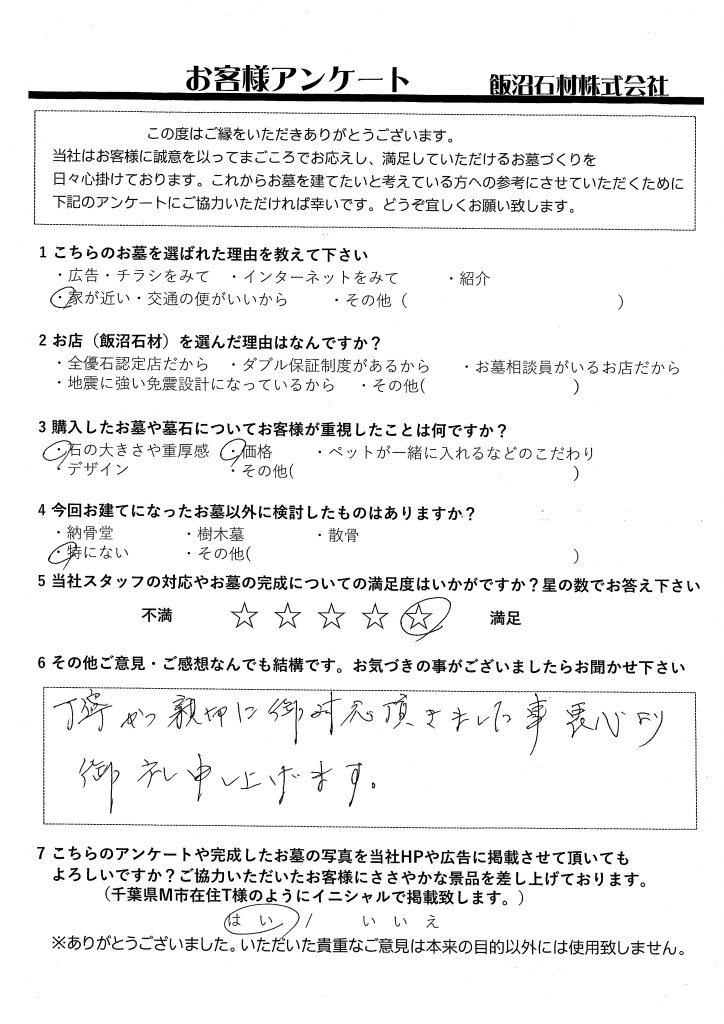 お客様アンケート 飯沼石材株式会社
この度はご縁をいただきありがとうございます。
当社はお客様に誠意を以ってまごころでお応えし、満足していただけるお墓づくりを
日々心掛けております。これからお墓を建てたいと考えている方への参考にさせていただくために
下記のアンケートにご協力いただければ幸いです。どうぞ宜しくお願い致します。
1 こちらのお墓を選ばれた理由を教えて下さい
・広告・チラシをみて ・インターネットをみて ・紹介
・家が近い・交通の便がいいから ・その他（ ）
2 お店（飯沼石材）を選んだ理由はなんですか？
・全優石認定店だから ・ダブル保証制度があるから ・お墓相談員がいるお店だから
・地震に強い免震設計になっているから ・その他( )
3 購入したお墓や墓石についてお客様が重視したことは何ですか？
・石の大きさや重厚感 ・価格 ・ペットが一緒に入れるなどのこだわり
・デザイン ・その他( )
4 今回お建てになったお墓以外に検討したものはありますか？
・納骨堂 ・樹木墓 ・散骨
・特にない ・その他( )
5 当社スタッフの対応やお墓の完成についての満足度はいかがですか？星の数でお答え下さい
不満 ☆ ☆ ☆ ☆ ☆ 満足
6 その他ご意見・ご感想なんでも結構です。お気づきの事がございましたらお聞かせ下さい
丁寧かつ親切に御対応頂きました事衷心より
御礼申し上げます。
7 こちらのアンケートや完成したお墓の写真を当社HPや広告に掲載させて頂いても
よろしいですか？ご協力いただいたお客様にささやかな景品を差し上げております。
（千葉県M市在住T様のようにイニシャルで掲載致します。）
はい / いいえ
※ありがとうございました。いただいた貴重なご意見は本来の目的以外には使用致しません。